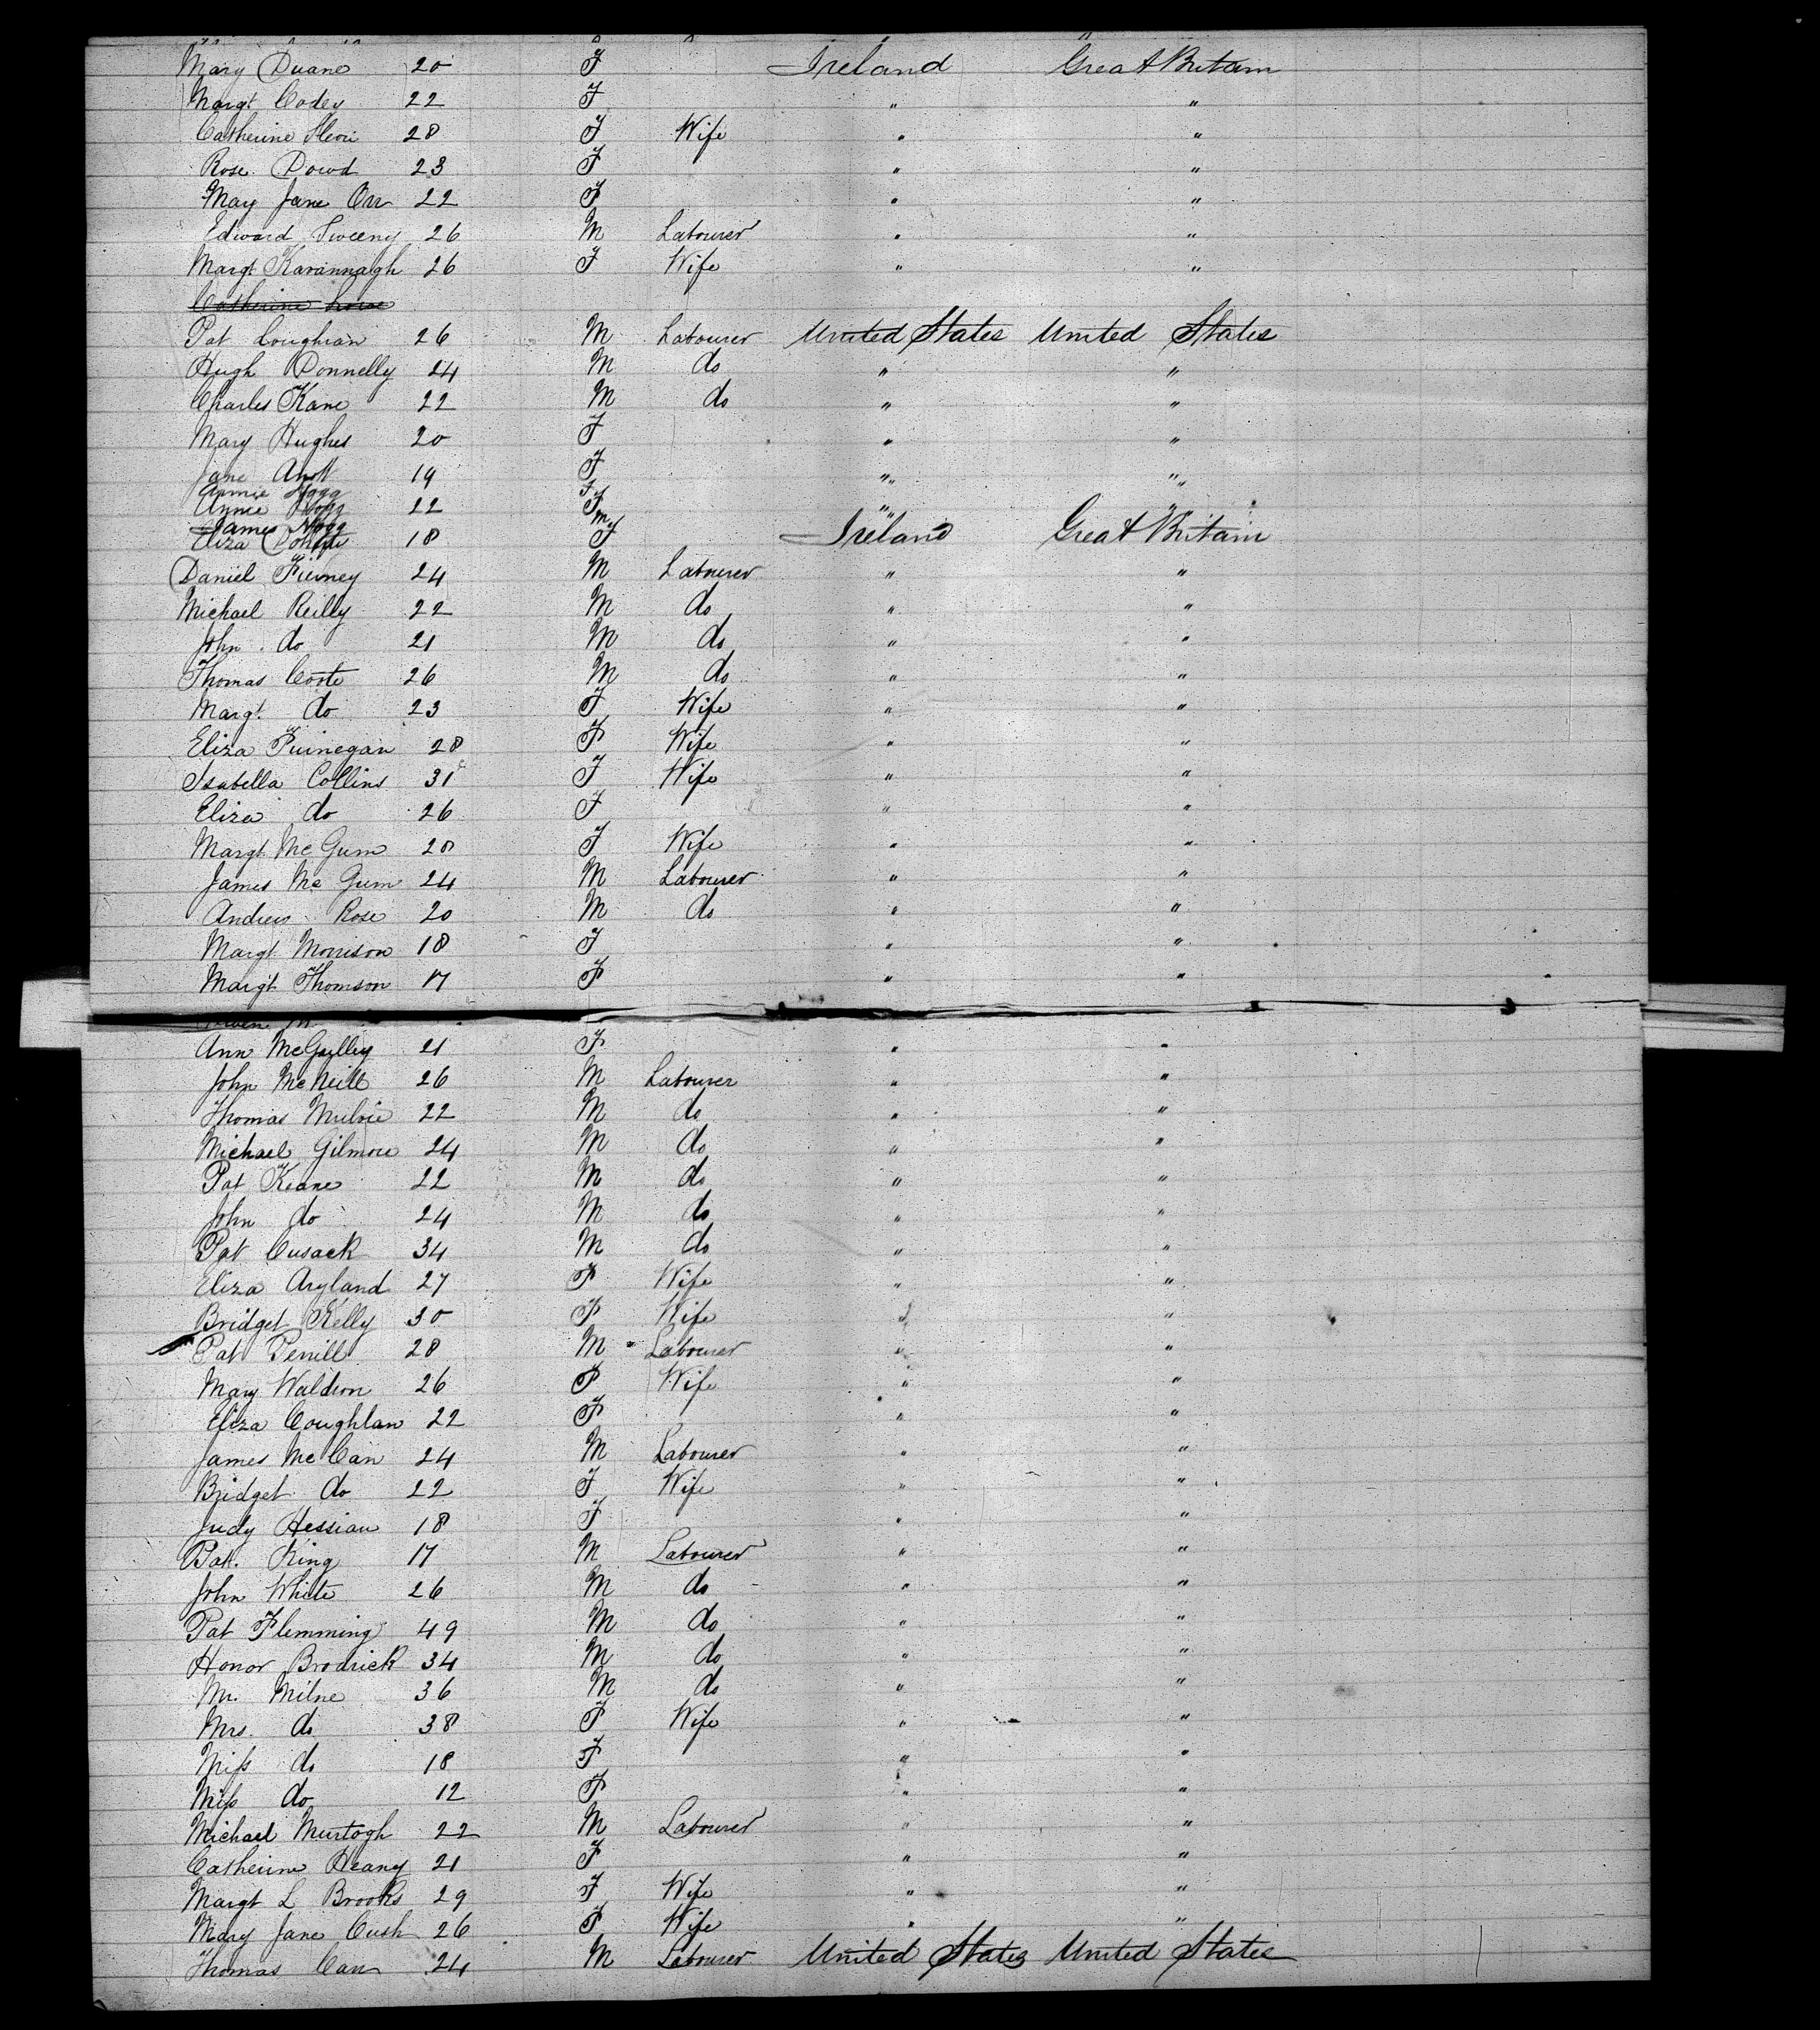 Mary Duane 20 F Ireland Great Britain
Margt Codey 22 F " "
Catherine 28 F Wife " "
Rose Dowd 23 F " "
Mary Jane Orr 22 F " "
Edward Sweeny 26 M Labourer " "
Margt Kavannagh 26 F Wife " "
Catherine
Pat Loughran 26 M Labourer United States United States
Hugh Donnelly 24 M do " "
Charles Kane 22 M do " "
Mary Hughes 20 F " "
Jane 19 F " "
Annie Hogg F " "
Annie Hogg 22 F " "
James Hogg M
Eliza 18 F Ireland Great Britain
Daniel 24 M Labourer " "
Michael Reilly 22 M do " "
John do 21 M do " "
Thomas Coote 26 M do " "
Margt. do 23 F Wife " "
Eliza Finnegan 28 F Wife " "
Isabella Collins 31 F Wife " "
Eliza do 26 F " "
Margt. McGurn 20 F Wife " "
James McGurn 24 M Labourer " "
Andrew Rose 20 M do " "
Margt Morrison 18 F " "
Margt Thomson 17 F " "
Ann 21 F " "
John McNeill 26 M Labourer " "
Thomas 22 M do " "
Michael Gilmore 24 M do " "
Pat Keane 22 M do " "
John do 24 M do " "
Pat Cusack 34 M do " "
Eliza Aryland 27 F Wife " "
Bridget Kelly 30 F Wife " "
Pat 28 M Labourer " "
Mary Waldron 26 F Wife " "
Eliza Coughlan 22 F " "
James McCan 24 M Labourer " "
Bridget do 22 F Wife " "
Judy Hessian 18 F " "
Pat. King 17 M Labourer " "
John White 26 M do " "
Pat Flemming 49 M do " "
Honor Brodrick 34 M do " "
Mr. Milne 36 M do " "
Mrs. do 38 F Wife " "
Miss do 18 F " "
Miss do 12 F " "
Michael Murtogh 22 M Labourer " "
Catherine Heany 21 F " "
Margt L Brooks 29 F Wife " "
Mary Jane Cush 26 F Wife " "
Thomas Carr 24 M Labourer United States United States